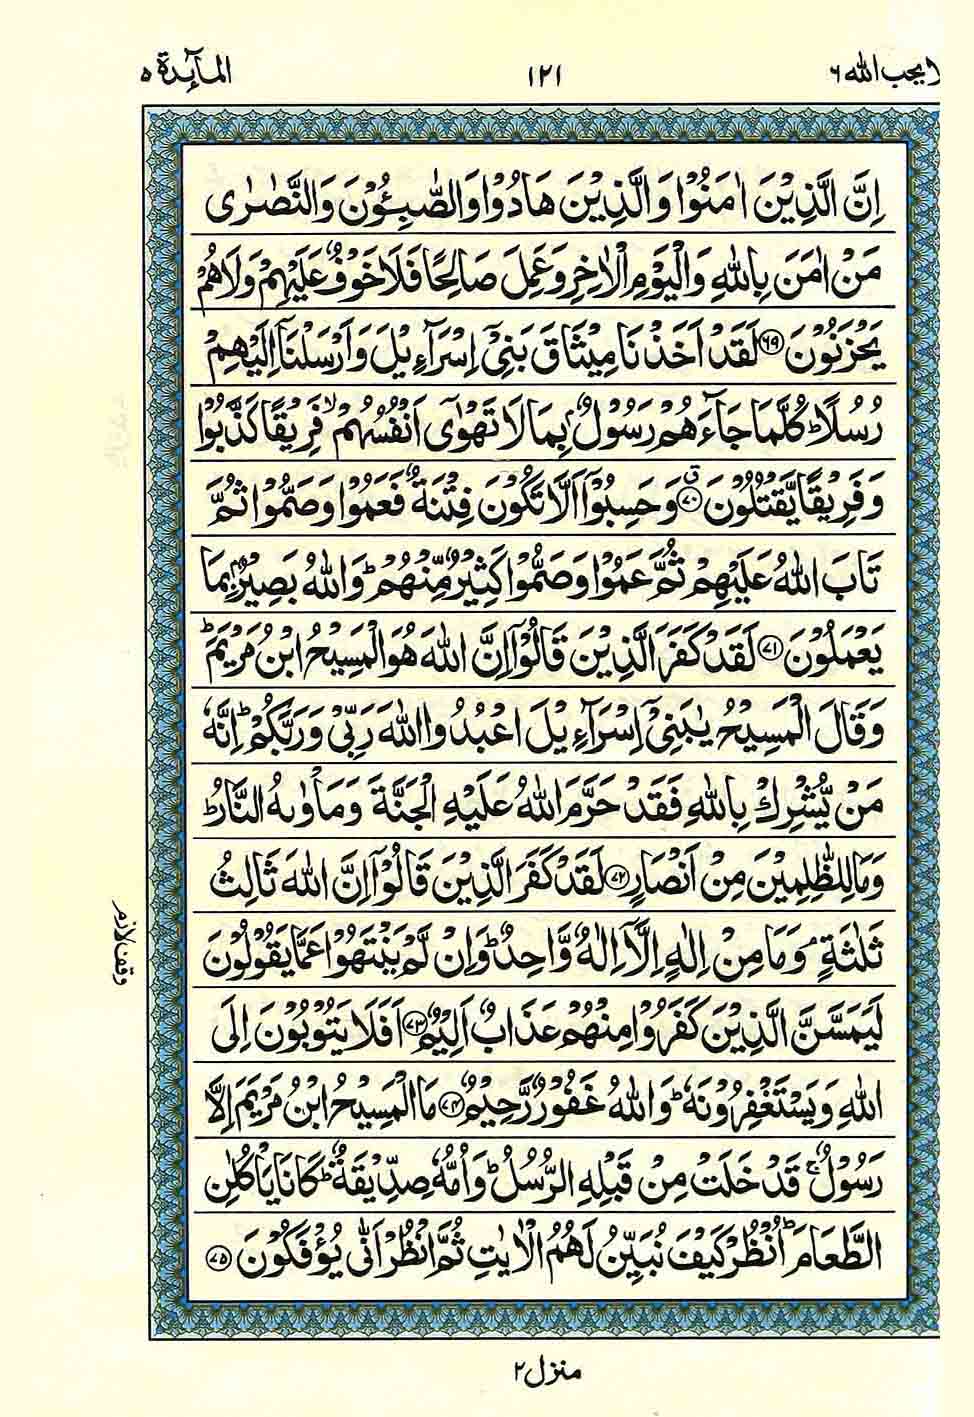 لا يحب الله ٦
١٢١
المآئدة ٥
اِنَّ الَّذِيْنَ اٰمَنُوْا وَالَّذِيْنَ هَادُوْا وَالصّٰبِـُٔوْنَ وَالنَّصٰرٰى
مَنْ اٰمَنَ بِاللّٰهِ وَالْيَوْمِ الْاٰخِرِ وَعَمِلَ صَالِحًا فَلَا خَوْفٌ عَلَيْهِمْ وَلَا هُمْ
يَحْزَنُوْنَ ﴿٦٩﴾ لَقَدْ اَخَذْنَا مِيْثَاقَ بَنِيْٓ اِسْرَآءِيْلَ وَاَرْسَلْنَآ اِلَيْهِمْ
رُسُلًا ؕ كُلَّمَا جَآءَهُمْ رَسُوْلٌۢ بِمَا لَا تَهْوٰٓى اَنْفُسُهُمْ ۙ فَرِيْقًا كَذَّبُوْا
وَفَرِيْقًا يَّقْتُلُوْنَ ﴿٧٠﴾ ۗ وَحَسِبُوْٓا اَلَّا تَكُوْنَ فِتْنَةٌ فَعَمُوْا وَصَمُّوْا ثُمَّ
تَابَ اللّٰهُ عَلَيْهِمْ ثُمَّ عَمُوْا وَصَمُّوْا كَثِيْرٌ مِّنْهُمْ ؕ وَاللّٰهُ بَصِيْرٌۢ بِمَا
يَعْمَلُوْنَ ﴿٧١﴾ لَقَدْ كَفَرَ الَّذِيْنَ قَالُوْٓا اِنَّ اللّٰهَ هُوَ الْمَسِيْحُ ابْنُ مَرْيَمَ ؕ
وَقَالَ الْمَسِيْحُ يٰبَنِيْٓ اِسْرَآءِيْلَ اعْبُدُوا اللّٰهَ رَبِّيْ وَرَبَّكُمْ ؕ اِنَّهٗ
مَنْ يُّشْرِكْ بِاللّٰهِ فَقَدْ حَرَّمَ اللّٰهُ عَلَيْهِ الْجَنَّةَ وَمَاْوٰىهُ النَّارُ ؕ
وَمَا لِلظّٰلِمِيْنَ مِنْ اَنْصَارٍ ﴿٧٢﴾ لَقَدْ كَفَرَ الَّذِيْنَ قَالُوْٓا اِنَّ اللّٰهَ ثَالِثُ
ثَلٰثَةٍ ۘ وَمَا مِنْ اِلٰهٍ اِلَّآ اِلٰهٌ وَّاحِدٌ ؕ وَاِنْ لَّمْ يَنْتَهُوْا عَمَّا يَقُوْلُوْنَ
وقف لازم
لَيَمَسَّنَّ الَّذِيْنَ كَفَرُوْا مِنْهُمْ عَذَابٌ اَلِيْمٌ ﴿٧٣﴾ اَفَلَا يَتُوْبُوْنَ اِلَى
اللّٰهِ وَيَسْتَغْفِرُوْنَهٗ ؕ وَاللّٰهُ غَفُوْرٌ رَّحِيْمٌ ﴿٧٤﴾ مَا الْمَسِيْحُ ابْنُ مَرْيَمَ اِلَّا
رَسُوْلٌ ۚ قَدْ خَلَتْ مِنْ قَبْلِهِ الرُّسُلُ ؕ وَاُمُّهٗ صِدِّيْقَةٌ ؕ كَانَا يَاْكُلٰنِ
الطَّعَامَ ؕ اُنْظُرْ كَيْفَ نُبَيِّنُ لَهُمُ الْاٰيٰتِ ثُمَّ انْظُرْ اَنّٰى يُؤْفَكُوْنَ ﴿٧٥﴾
منزل ٢